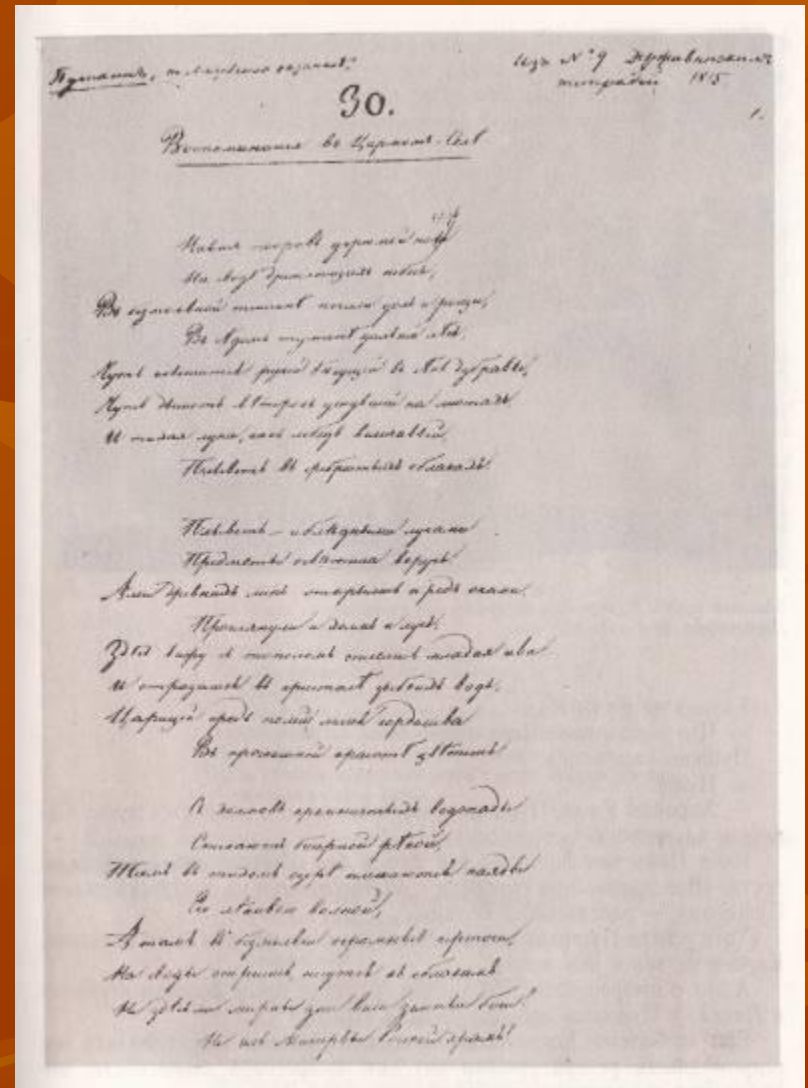 Изъ № 9 Державинскихъ
тетрадей 1815
30.
1.
Воспоминанія въ Царскомъ-Селѣ
Нависъ покровъ угрюмой нощи
На сводѣ дремлющихъ небесъ,
Въ безмолвной тишинѣ почили долъ и рощи,
Въ сѣдомъ туманѣ дальній лѣсъ.
Чуть слышится ручей бѣгущій въ сѣнь дубравы,
Чуть дышетъ вѣтерокъ уснувшій на листахъ
И тихая луна, какъ лебедь величавый,
Плыветъ въ сребристыхъ облакахъ.
Плыветъ — и блѣдными лучами
Предметы освѣтила вдругъ
Алеи древнихъ липъ открылись предъ очами,
Проглянули и холмъ и лугъ.
Здѣсь вижу съ тополемъ сплелась младая ива
И отразилась въ кристалѣ зыбкихъ водъ,
Царицей средь полей лилея горделива
Въ роскошной красотѣ цвѣтетъ
Съ холмовъ кремнистыхъ водопады
Стекаютъ бисерной рѣкой,
Тамъ въ тихомъ озерѣ плескаются наяды
Его лѣнивою волной,
А тамъ въ безмолвіи огромные чертоги,
На своды опершись, несутся къ облакамъ
Не здѣсь ли мирны дни вели земные боги?
Не се ль Минервы Росской храмъ!